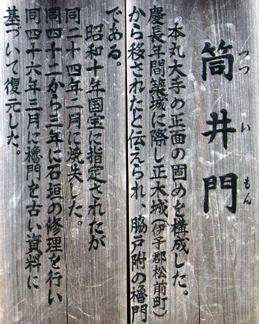 筒井門
つついもん
本丸大手の正面の固めを構成した。
慶長年間築城に際し正木城(伊予郡松前町)
から移されたと伝えられ、脇戸附の櫓門
である。
昭和十年国宝に指定されたが
同二十四年二月に焼失した。
同四十二から三年に石垣の修理を行い
同四十六年三月に櫓門を古い資料に
基づいて復元した。